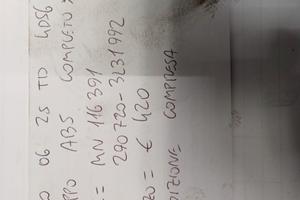 O 06 25 TD 4D56
PPO ABS COMPLETO
= MN 116391
290720-3231992
ZO = € 420
DIZIONE COMPRESA